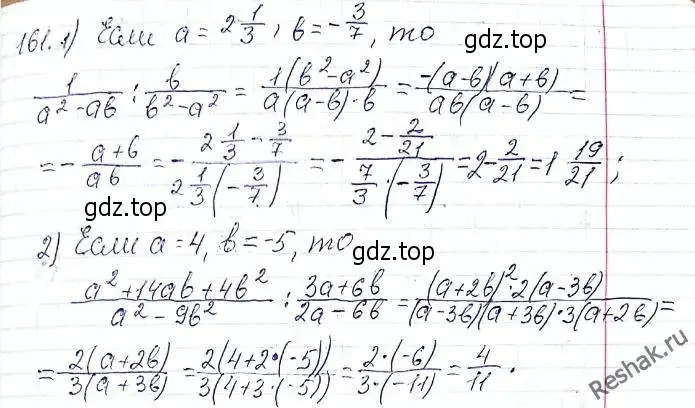 161. 1) Если a = 2 1/3, b = -3/7, то
gdz.top
1/(a² - ab) : b/(b² - a²) = 1(b² - a²)/(a(a-b)·b) = -(a-b)(a+b)/(ab(a-b)) =
= - (a+b)/(ab) = - (2 1/3 - 3/7)/(2 1/3(-3/7)) = - (2 - 2/21)/(7/3·(-3/7)) = 2 - 2/21 = 1 19/21;
gdz.top
2) Если a = 4, b = -5, то
gdz.top
(a² + 14ab + 4b²)/(a² - 9b²) : (3a+6b)/(2a-6b) = (a+2b)²·2(a-3b)/((a-3b)(a+3b)·3(a+2b)) =
= 2(a+2b)/(3(a+3b)) = 2(4+2·(-5))/(3(4+3·(-5))) = 2·(-6)/(3·(-11)) = 4/11.
gdz.top
Reshak.ru